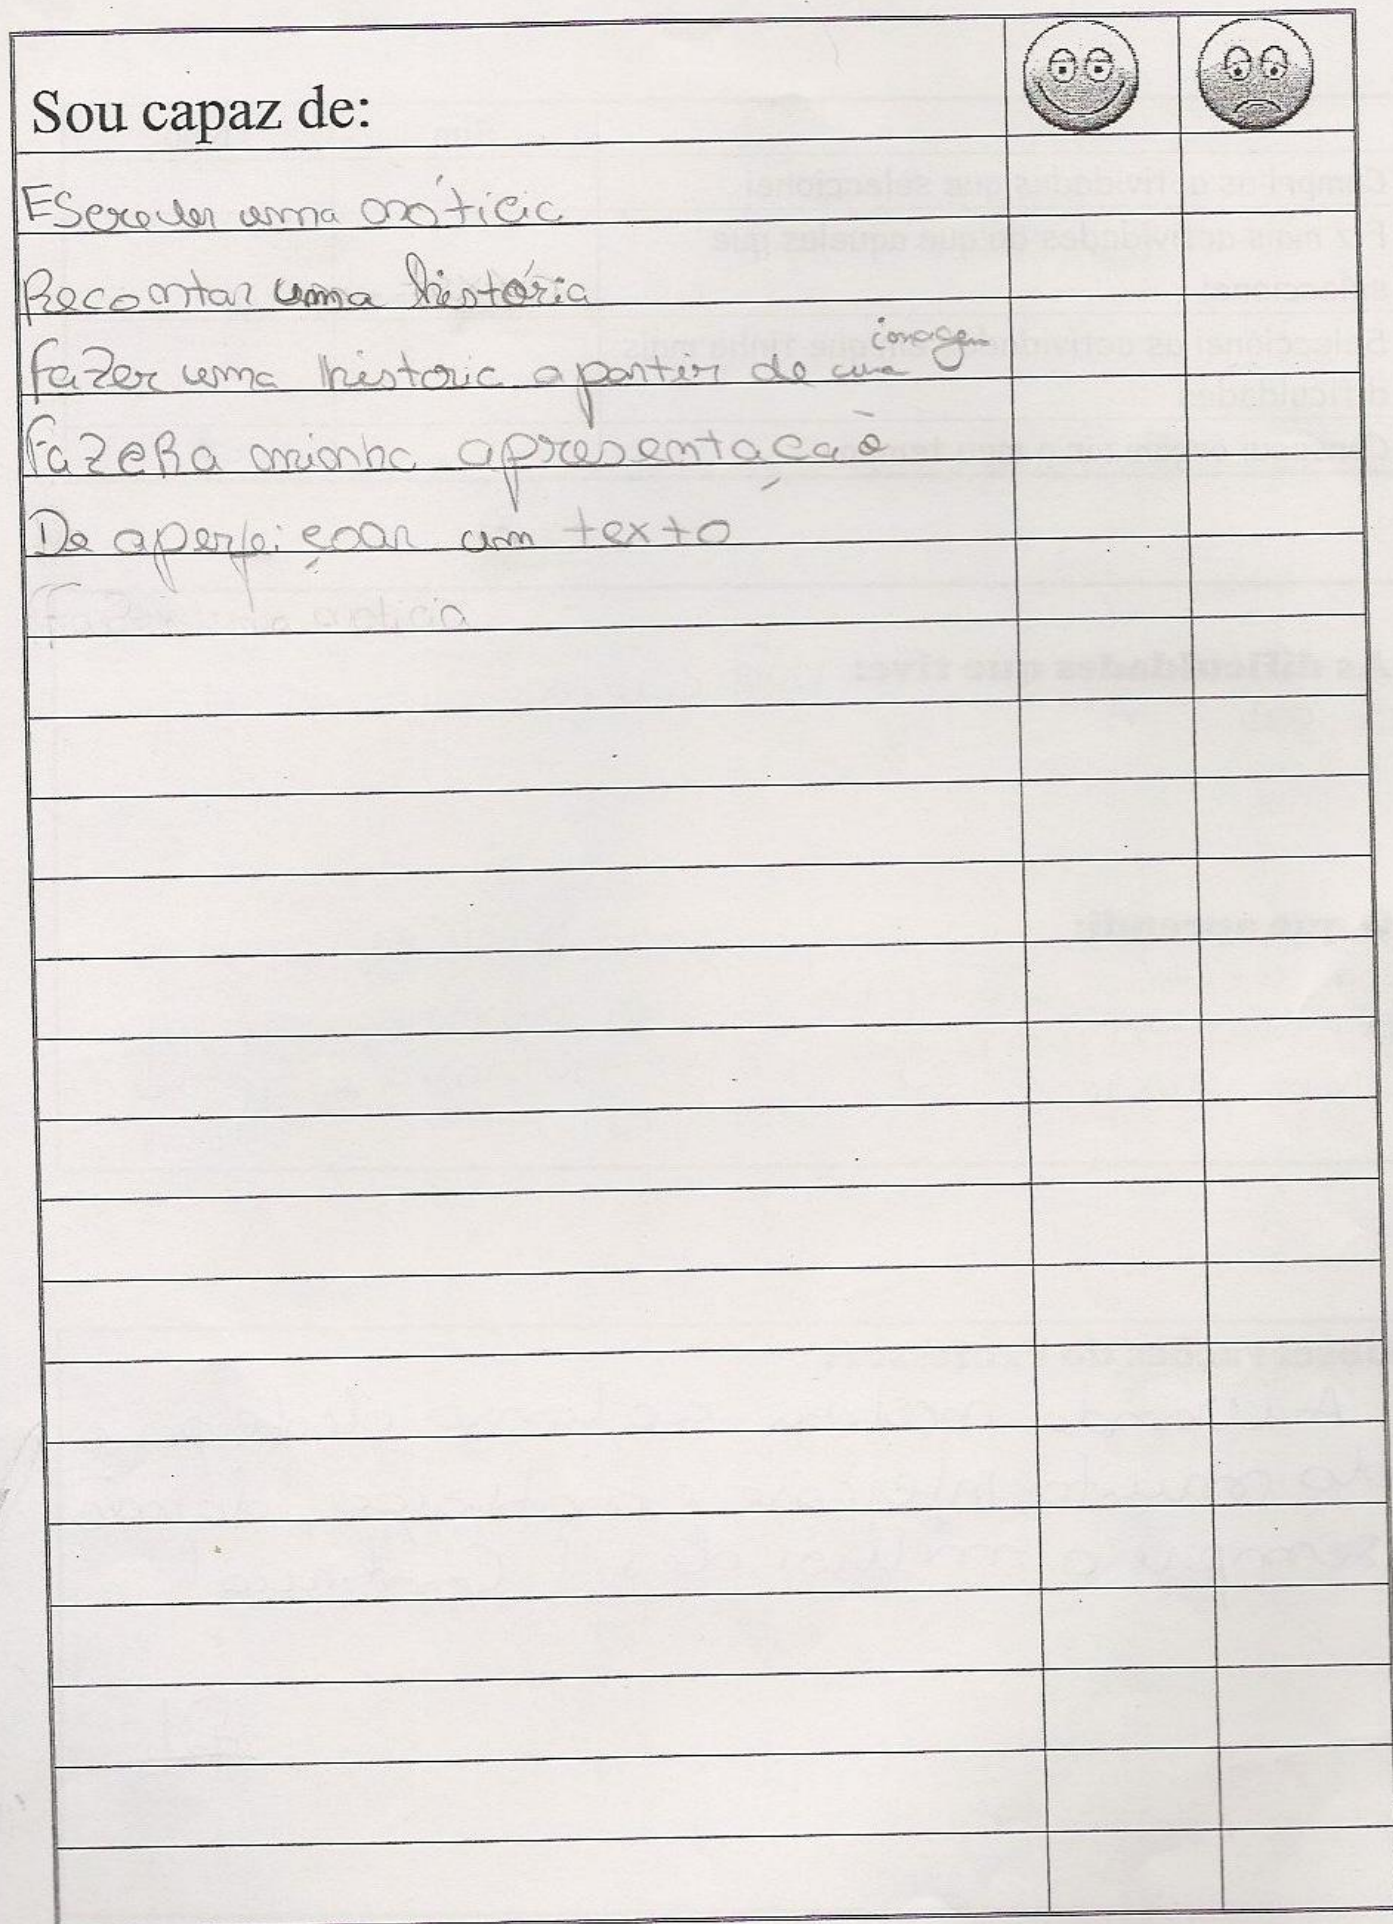 Sou capaz de:
Escrever uma nóticia
Recontar uma história
fazer uma historia a partir de uma imagem
fazer a minha apresentação
De aperfeiçoar um texto